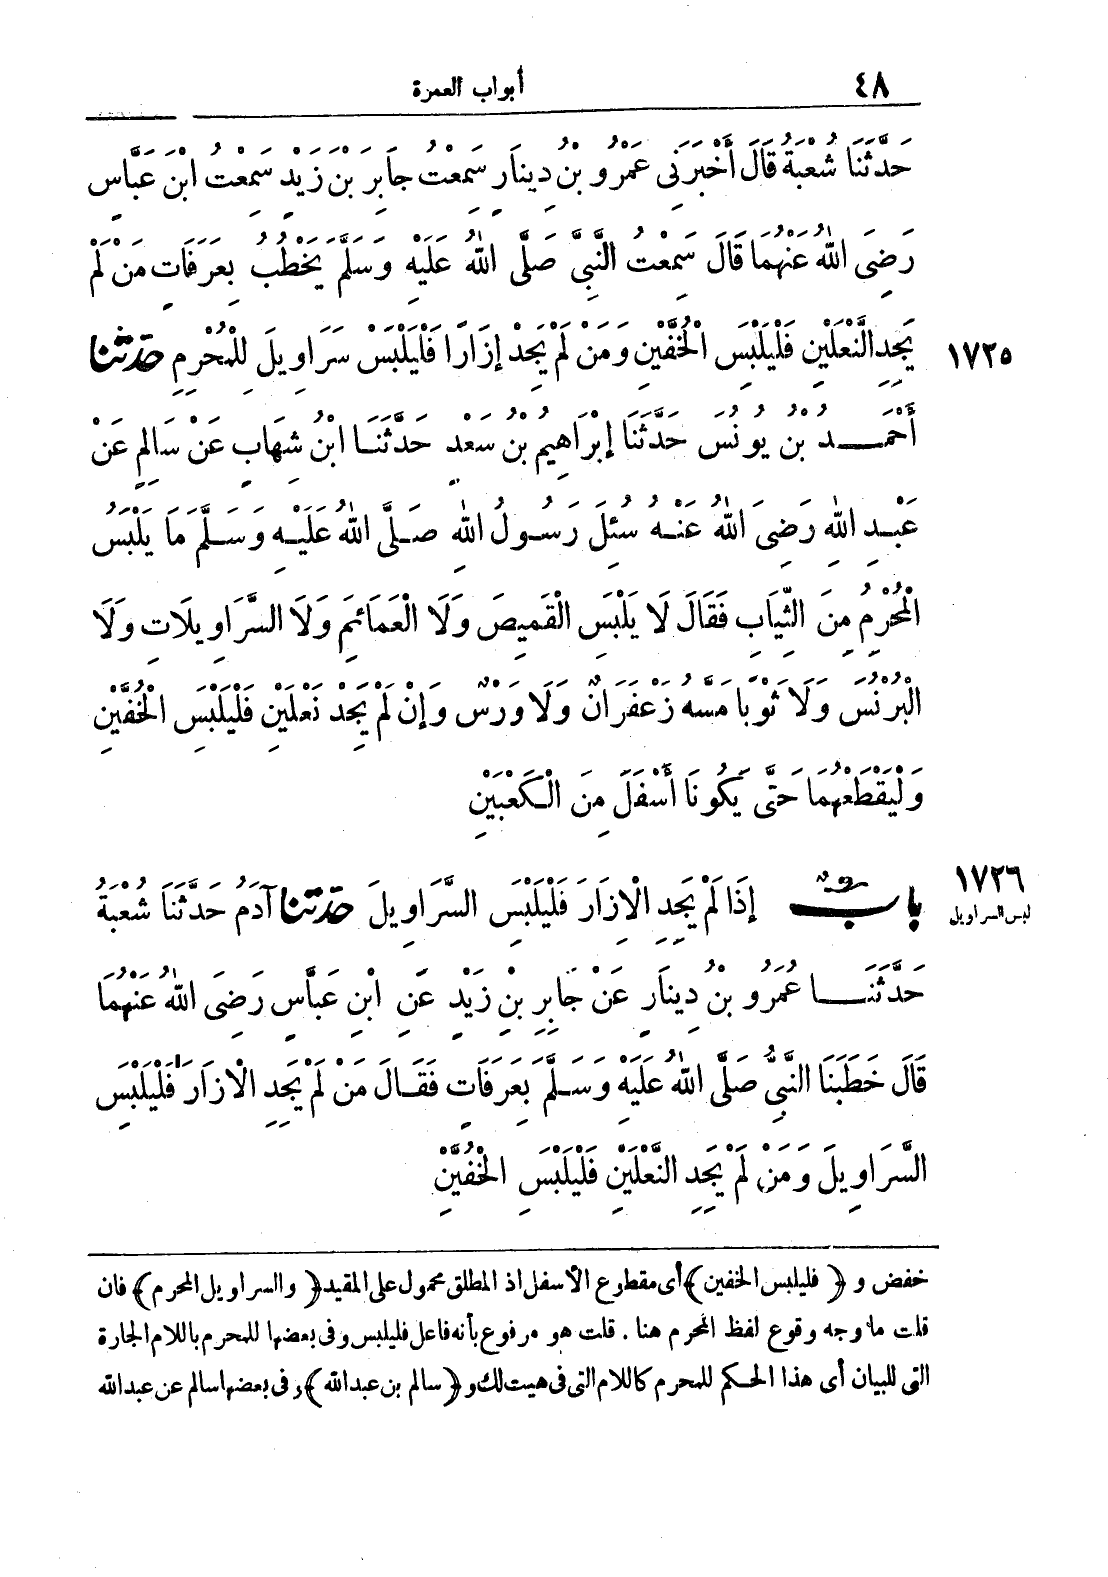 ٤٨ أبواب العمرة
حَدَّثَنَا شُعْبَةُ قَالَ أَخْبَرَنِى عَمْرُو بْنُ دِينَارٍ سَمِعْتُ جَابِرَ بْنَ زَيْدٍ سَمِعْتُ ابْنَ عَبَّاسٍ
رَضِىَ اللهُ عَنْهُمَا قَالَ سَمِعْتُ النَّبِىَّ صَلَّى اللهُ عَلَيْهِ وَسَلَّمَ يَخْطُبُ بِعَرَفَاتٍ مَنْ لَمْ
يَجِدِ النَّعْلَيْنِ فَلْيَلْبَسِ الْخُفَّيْنِ وَمَنْ لَمْ يَجِدْ إِزَارًا فَلْيَلْبَسْ سَرَاوِيلَ لِلْمُحْرِمِ حَدَّثَنَا
١٧٢٥
أَحْمَدُ بْنُ يُونُسَ حَدَّثَنَا إِبْرَاهِيمُ بْنُ سَعْدٍ حَدَّثَنَا ابْنُ شِهَابٍ عَنْ سَالِمٍ عَنْ
عَبْدِ اللهِ رَضِىَ اللهُ عَنْهُ سُئِلَ رَسُولُ اللهِ صَلَّى اللهُ عَلَيْهِ وَسَلَّمَ مَا يَلْبَسُ
الْمُحْرِمُ مِنَ الثِّيَابِ فَقَالَ لَا يَلْبَسِ الْقَمِيصَ وَلَا الْعَمَائِمَ وَلَا السَّرَاوِيلَاتِ وَلَا
الْبُرْنُسَ وَلَا ثَوْبًا مَسَّهُ زَعْفَرَانٌ وَلَا وَرْسٌ وَإِنْ لَمْ يَجِدْ نَعْلَيْنِ فَلْيَلْبَسِ الْخُفَّيْنِ
وَلْيَقْطَعْهُمَا حَتَّى يَكُونَا أَسْفَلَ مِنَ الْكَعْبَيْنِ
١٧٢٦
لبس السراويل
بَابٌ إِذَا لَمْ يَجِدِ الْإِزَارَ فَلْيَلْبَسِ السَّرَاوِيلَ حَدَّثَنَا آدَمُ حَدَّثَنَا شُعْبَةُ
حَدَّثَنَا عَمْرُو بْنُ دِينَارٍ عَنْ جَابِرِ بْنِ زَيْدٍ عَنِ ابْنِ عَبَّاسٍ رَضِىَ اللهُ عَنْهُمَا
قَالَ خَطَبَنَا النَّبِىُّ صَلَّى اللهُ عَلَيْهِ وَسَلَّمَ بِعَرَفَاتٍ فَقَالَ مَنْ لَمْ يَجِدِ الْإِزَارَ فَلْيَلْبَسِ
السَّرَاوِيلَ وَمَنْ لَمْ يَجِدِ النَّعْلَيْنِ فَلْيَلْبَسِ الْخُفَّيْنِ
خفض و (فليلبس الخفين) أى مقطوع الأسفل اذ المطلق محمول على المقيد (والسراويل المحرم) فان
قلت ما وجه وقوع لفظ المحرم هنا. قلت هو مرفوع بأنه فاعل فليلبس وفى بعضها للمحرم باللام الجارة
التى للبيان أى هذا الحكم للمحرم كاللام التى فى هيت لك و (سالم بن عبد الله) وفى بعضها سالم عن عبد الله